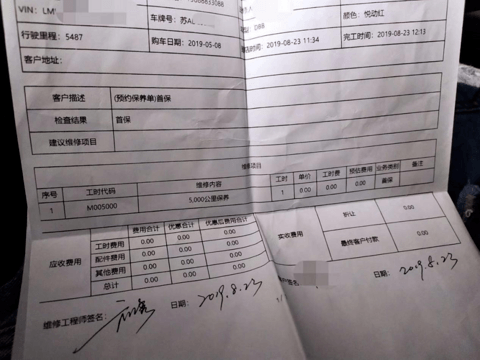 VIN: LM
车牌号：苏AL
颜色：悦动红
行驶里程：5487
购车日期：2019-05-08
2019-08-23 11:34
完工时间：2019-08-23 12:13
客户地址：
客户描述 (预约保养单)首保
检查结果 首保
建议维修项目
维修项目
序号 工时代码 维修内容 工时 单价 工时费 预估费用 业务类别 备注
1 M005000 5,000公里保养 1 0.00 0.00 0.00 首保
应收费用 费用合计 优惠合计 优惠后费用合计 实收费用 折让 0.00
工时费用 0.00 0.00 0.00
配件费用 0.00 0.00 0.00 最终客户付款 0.00
其他费用 0.00 0.00 0.00
总计 0.00 0.00 0.00
维修工程师签名： 日期：2019.8.23 日期：2019.8.23